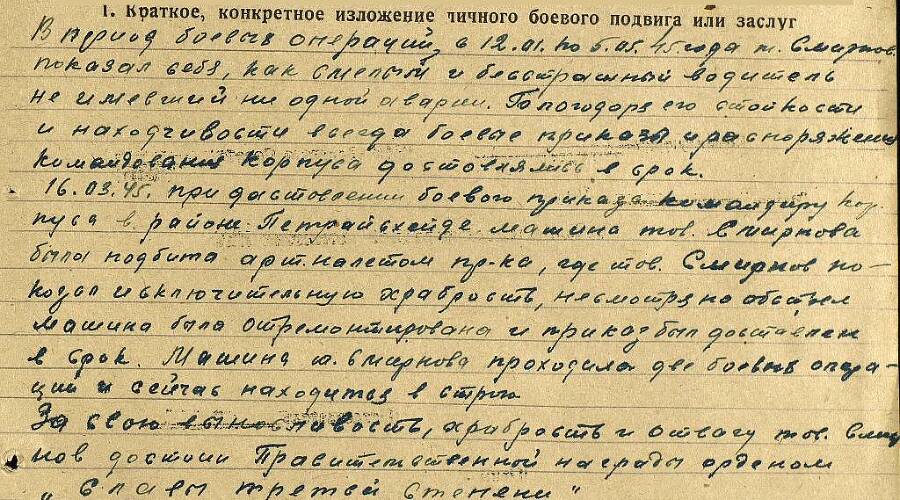 1. Краткое, конкретное изложение личного боевого подвига или заслуг
В период боевых операций, с 12.01. по 5.05.45 года т. Смирнов.
показал себя, как смелый и бесстрашный водитель
не имевший ни одной аварии. Гопогодоря его стойкости
и находчивости всегда боевые приказы и распоряжения
командования корпуса доставлялись в срок.
16.03.45. при доставлении боевого приказа командиру кор
пуса в районе Петрайсхейде машина тов. Смирнова
была подбита арт.налетом пр-ка, где тов. Смирнов по-
казал исключительную храбрость, несмотря на обстрел
машина была отремонтирована и приказ был доставлен
в срок. Машина т. Смирнова проходила две боевых опера-
ций и сейчас находится в строю
За свою выносливость, храбрость и отвагу тов. Смир
нов достоин Правительственной награды орденом
"Славы третьей степени"